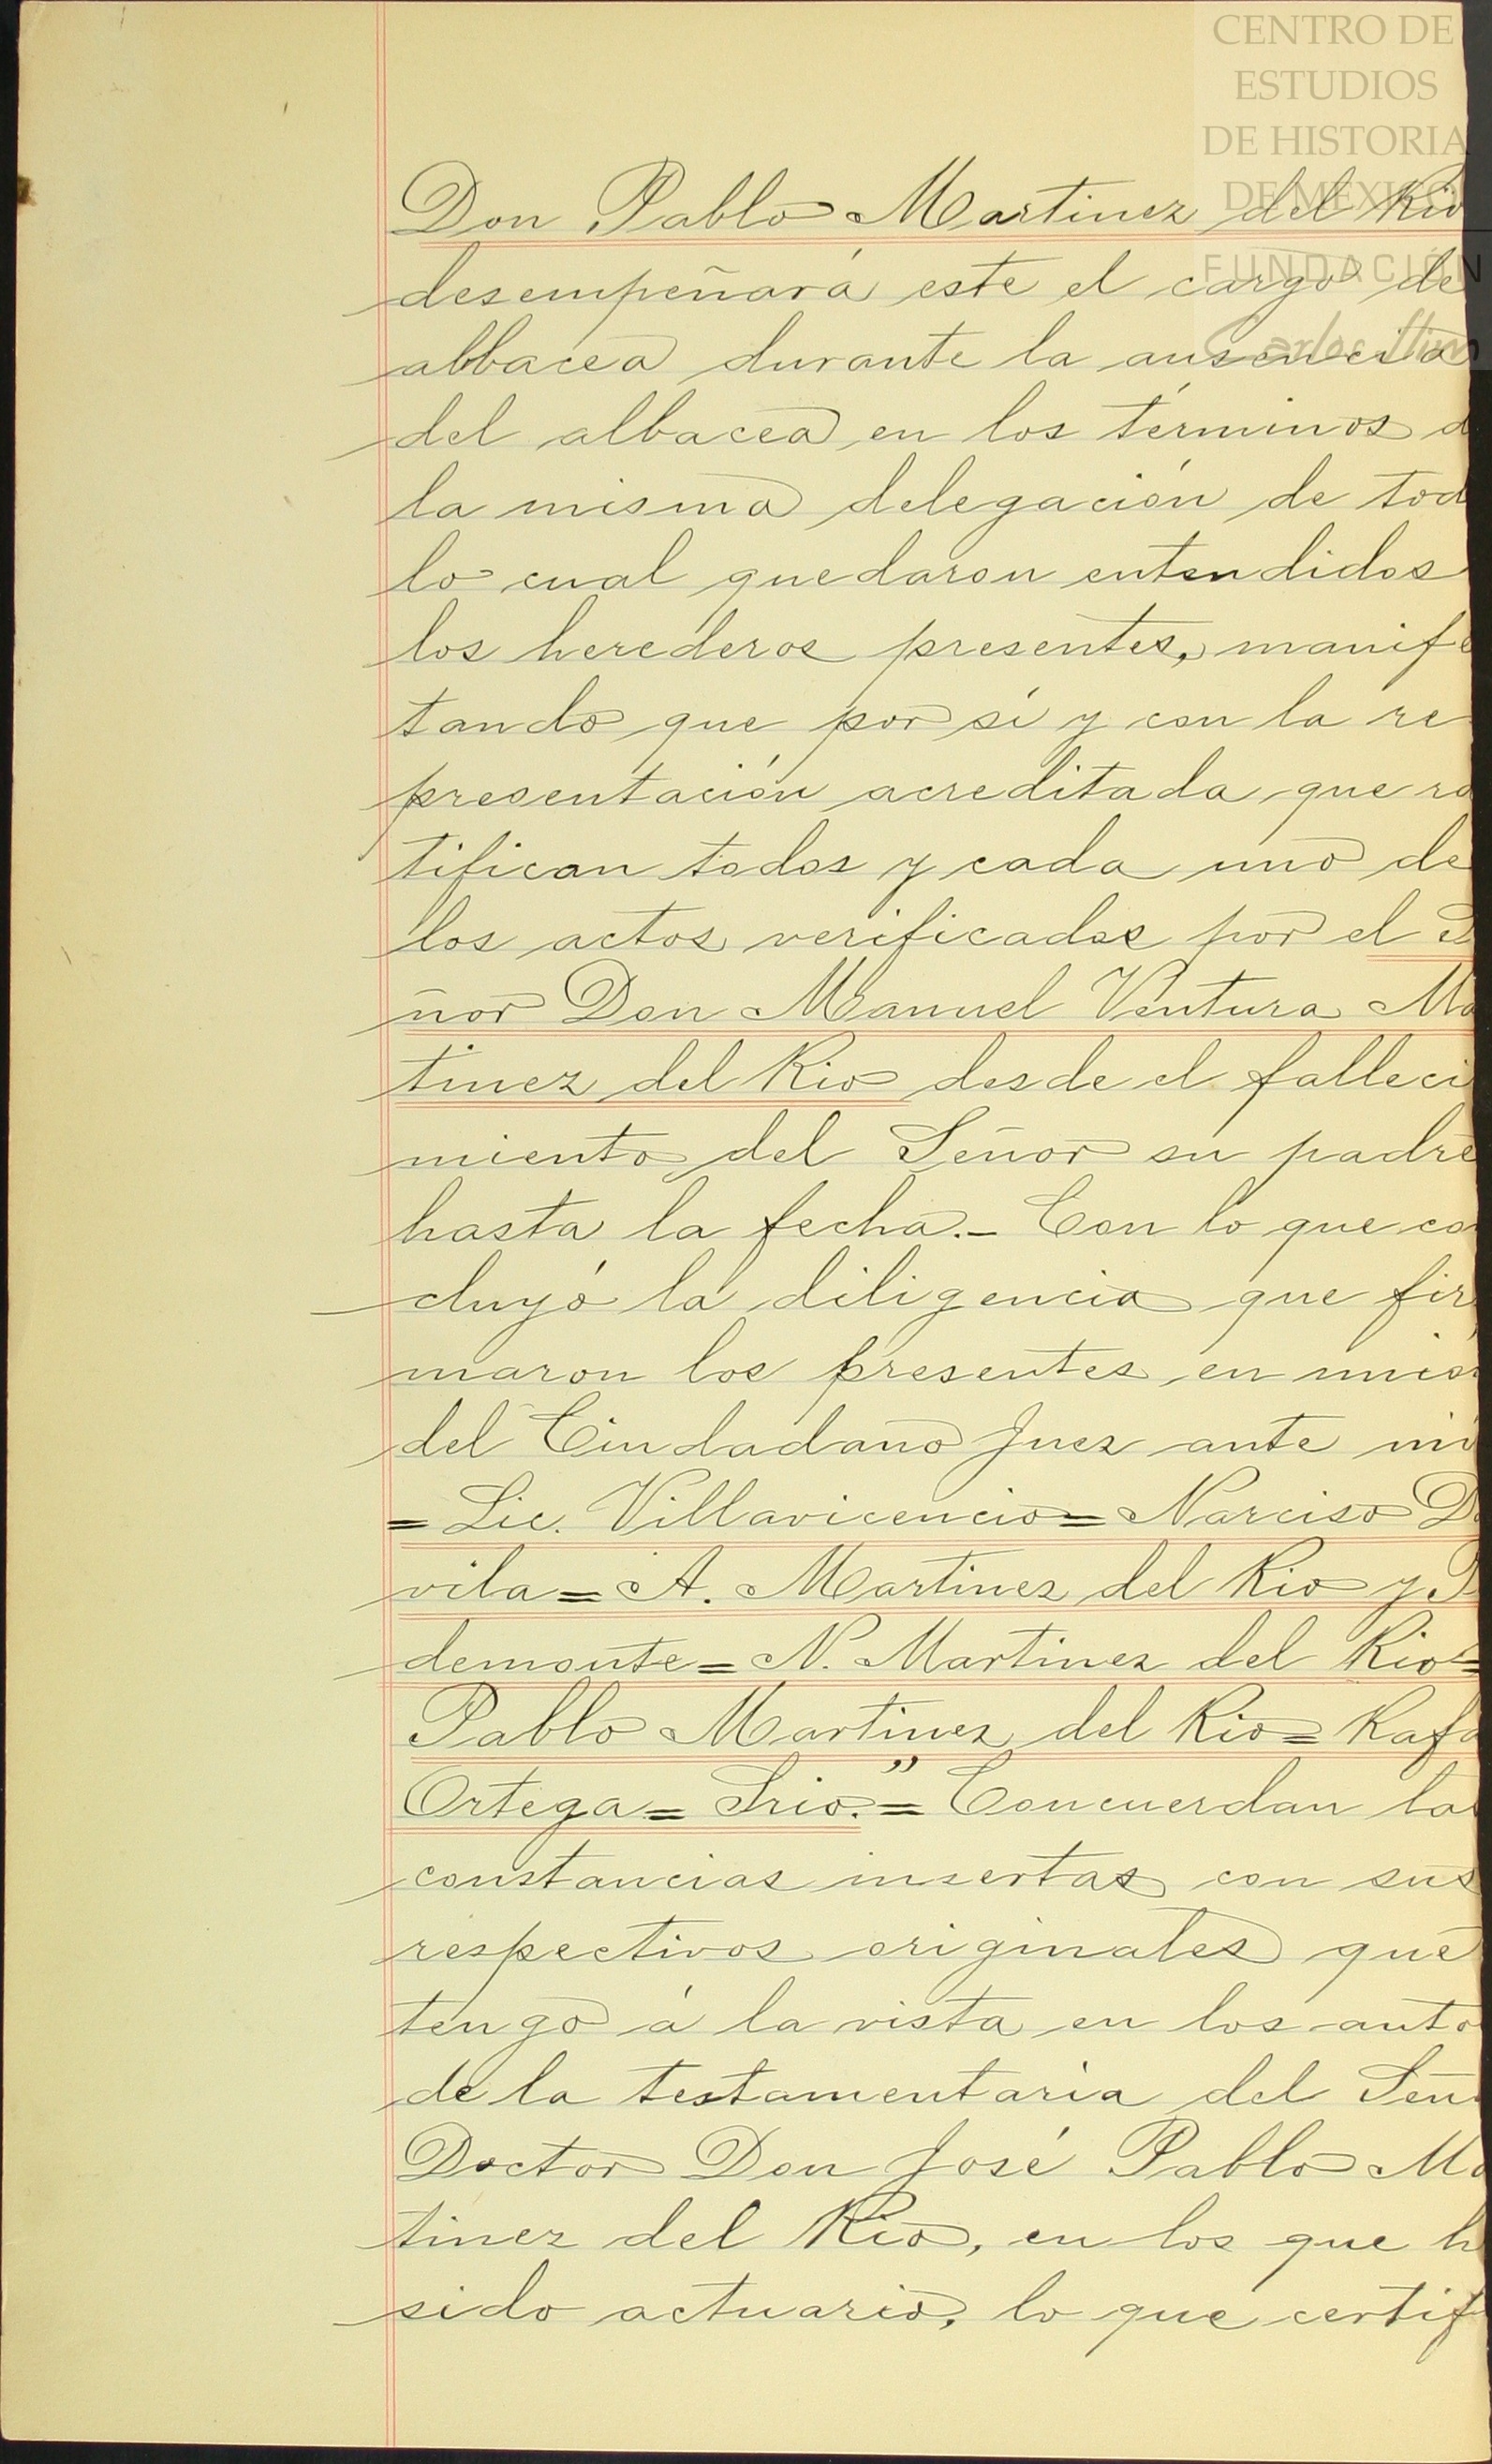 CENTRO DE
ESTUDIOS
DE HISTORIA
DE MEXICO
FUNDACIÓN
Carlos Slim
Don Pablo Martinez del Rio
desempeñará este el cargo de
albacea durante la ausencia
del albacea en los términos d
la misma delegación de tod
lo cual quedaron entendidos
los herederos presentes, manife
tando que por sí y con la re
presentación acreditada que ra
tifican todos y cada uno de
los actos verificados por el S
ñor Don Manuel Ventura Ma
tinez del Rio desde el falleci
miento del Señor su padre
hasta la fecha.- Con lo que co
cluyó la diligencia que fir
maron los presentes en unio
del Ciudadano Juez ante mi
= Lic. Villavicencio = Narciso Da
vila = A. Martinez del Rio y P
demonte = N. Martinez del Rio =
Pablo Martinez del Rio = Rafa
Ortega = Srio." = Concuerdan la
constancias insertas con sus
respectivos originales que
tengo á la vista en los auto
de la testamentaria del Señ
Doctor Don José Pablo Ma
tinez del Rio, en los que h
sido actuario, lo que certif